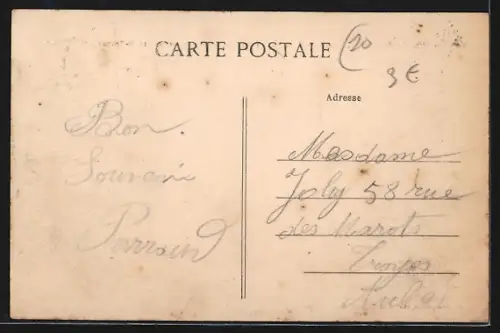 CARTE POSTALE
(10
3€
Adresse
Bon
Souvenir
Perraud
Madame
Joly 58 rue
des Marots
Troyes
Aube